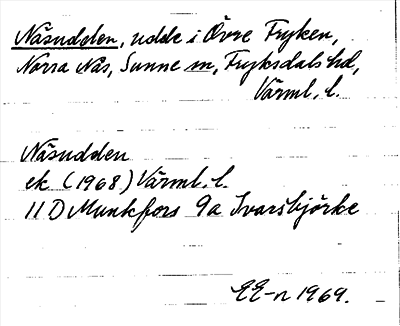 Näsudden, udde i Övre Fryken,
Norra Näs, Sunne sn, Fryksdals hd,
Värml. l.
Näsudden
ek (1968) Värml. l.
11 D Munkfors 9a Ivarsbjörke
EE-n 1969.